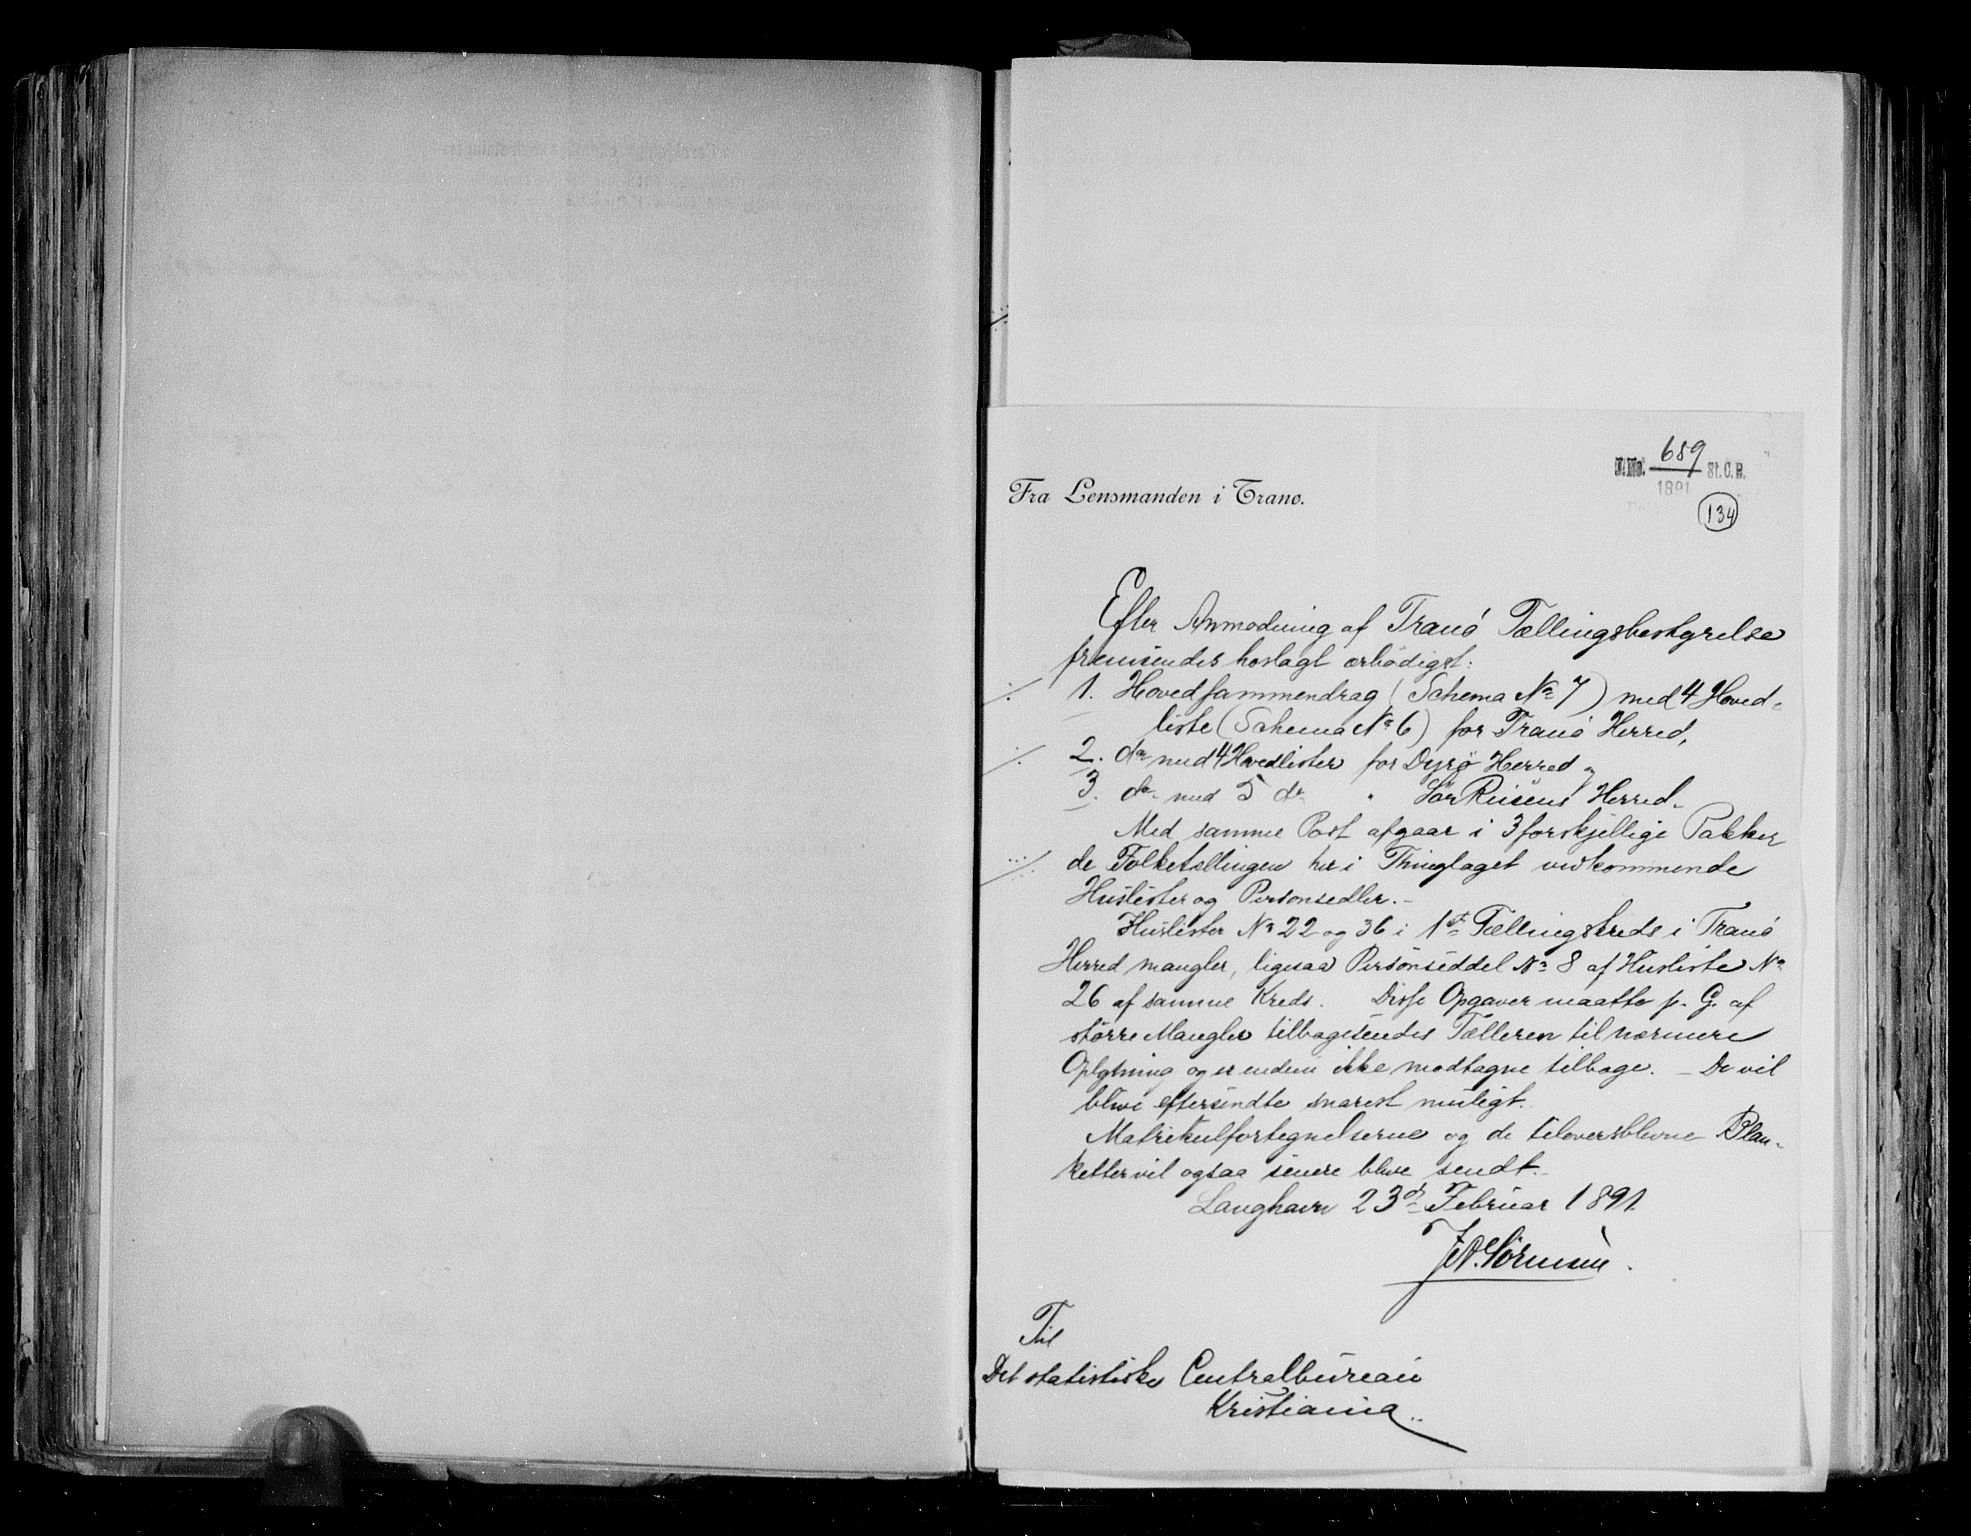 J.No. 689 St.C.B.
1891
134
Fra Lensmanden i Tranø.
Efter Anmodning af Tranö Tællingsbestyrelse
fremsendes hoslagt ærbödigst:
1. Hovedsammendrag (Schema No 7) med 4 Hoved-
liste (Schema No 6) for Tranö Herred,
2. do med 4 Hovedlister for Dyrö Herred og
3. do med 5 do " Sör Reisens Herred.
Med samme Post afgaar i 3 forskjellige Pakker
de Folketællingen her i Thinglaget vedkommende
Huslister og Personsedler. -
Huslister No 22 og 36 i 1st Tællingskreds i Tranö
Herred mangler, ligesaa Personseddel No 8 af Husliste No
26 af samme Kreds. Disse Opgaver maatte p. G. af
större Mangler tilbagesendes Tælleren til nærmere
Oplysning og er endnu ikke modtagne tilbage. - De vil
blive eftersendte snarest muligt.
Matrikulfortegnelserne og de tiloversblevne Blan-
ketter vil ogsaa senere blive sendt.
Langhavn 23d Februar 1891
Til
Det statistiske Centralbureau
Kristiania